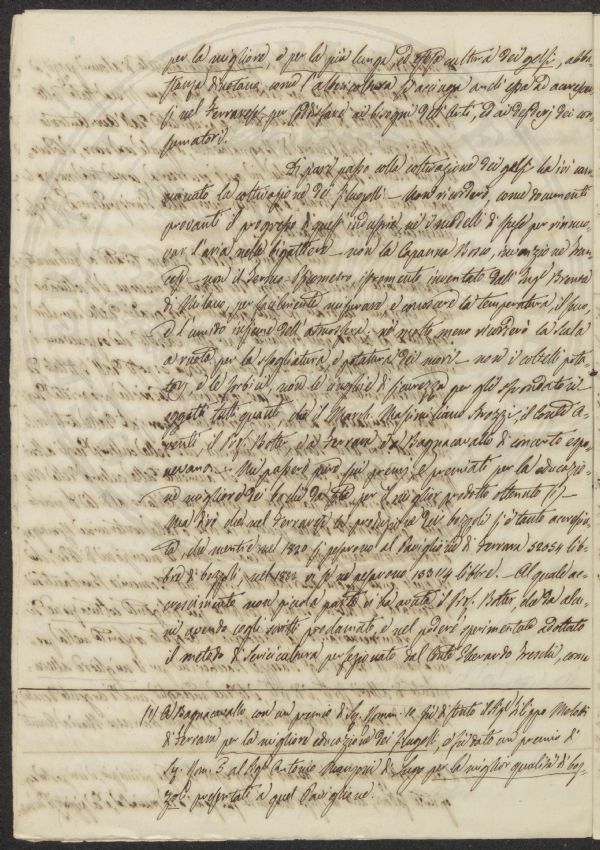 per la migliore, e per la più lunga, ed estesa cultura dei gelsi, abba-
stanza, come l'albericoltura s'accinga anch'essa ad accrescer-
si nel Ferrarese per soddisfare ai bisogni dell'Arti, ed ai desiderj dei con-
sumatori.
Di pari passo colla coltivazione dei gelsi ha ivi cam-
minato la coltivazione dei Filugelli — Non ricorderò, come documenti
provanti il progresso di quest'industria, nè i modelli di per rinnuo-
var l'aria nelle bigattiere — non la Capanna Rosso, invenzione Fran-
cese — non il Termo-Igrometro inventato dall' Ingr. Brenta
di Milano, per facilmente misurare e conoscere la temperatura, il
e l'umido insieme dell'atmosfera, nè molto meno ricorderò la Scala
a ruote per la sfogliatura, e potatura dei mori — non i coltelli pota-
torj e le forbici, non le di sicurezza per gli
oggetti tutti quanti che il March. Massimiliano Strozzi, il Conte A-
venti, il Prof. Botter e da Ferrara e da Bagnacavallo di concerto espo-
nevano. — Mi passerò pure sui premj, e premiati per la educazio-
ne migliore dei bachi da seta per il miglior prodotto ottenuto (1) —
Ma dirò che nel Ferrarese la produzione dei bozzoli s'è tanto accresciu-
ta, che mentre nel 1820 si pesarono al Paviglione di Ferrara 32054 lib-
bre di bozzoli, nel vi si ne pesarono 133114 libbre. — Al quale ac-
crescimento non piccola parte vi ha avuta il Prof. Botter, che da alcu-
ni avendo cogli scritti proclamato, e nel podere sperimentale adottato
il metodo di Sericicoltura perfezionato dal Conte Gherardo Freschi, come
(1) A Bagnacavallo con un premio di Sc. Rom. 10 fu distinto il Sigr. Filippo
di Ferrara per la migliore educazione dei Filugelli, e fu dato un premio di
Sc. Rom. 5 al Sigr. Antonio Manzoni di Lugo per la miglior qualità di boz-
zoli presentati a quel Paviglione.